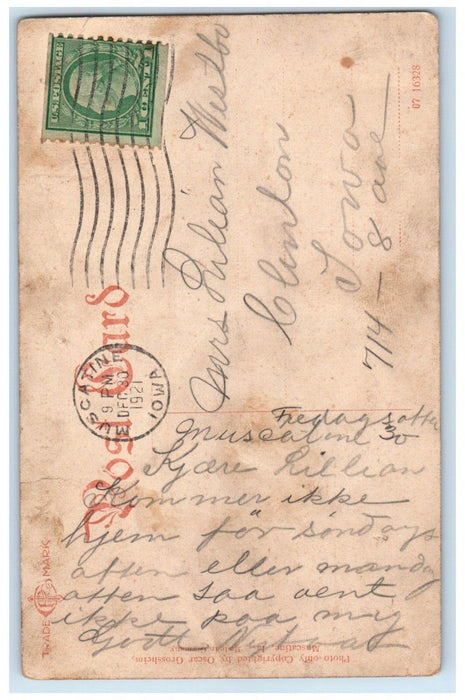 U.S. POSTAGE
1 CENT 1
Post Card
MUSCATINE
9 PM
DEC 30
1921
IOWA
Mrs Lilian Westbo
Clinton
Iowa
714 - 8 ave
07 16328
Fredags aften
Muscatine 30
Kjære Lillian
Kommer ikke
hjem før søndags
aften eller mandag
aften saa vent
ikke paa mig
Godt Nytaar
TRADE MARK
Photo only Copyrighted by Oscar Grossheim
Muscatine, Ia.